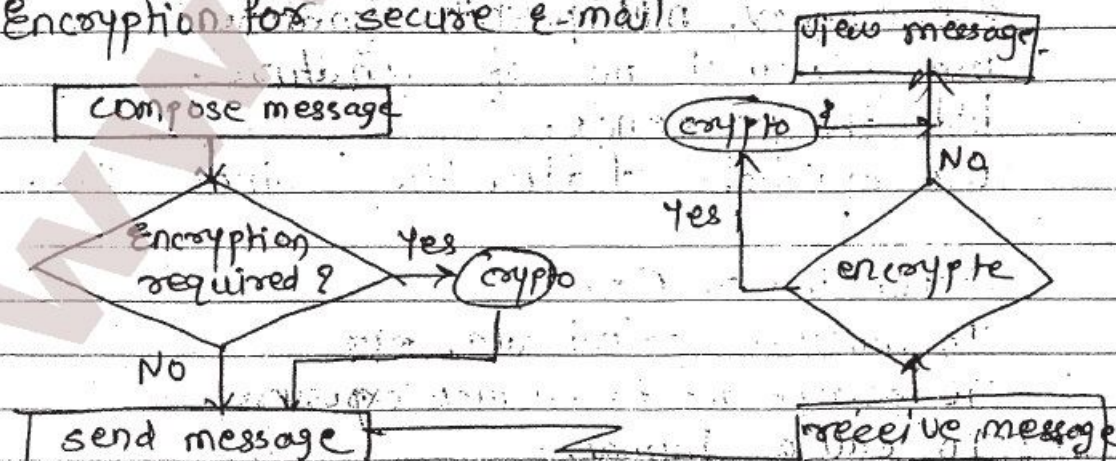 Encryption for secure e-mail:
compose message
Encryption
required ?
Yes
crypto
No
send message
view message.
crypto
No
Yes
encrypte
receive message